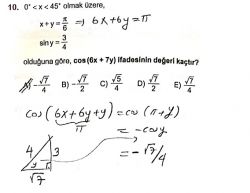 10. 0° < x < 45° olmak üzere,
x + y = π/6 ⇒ 6x + 6y = π
siny = 3/4
olduğuna göre, cos(6x + 7y) ifadesinin değeri kaçtır?
A) -√7/4 B) -√7/2 C) √5/4 D) √7/2 E) √7/4
cos(6x+6y+y) = cos(π+y)
π
= -cosy
4 3
y
= -√7/4
√7